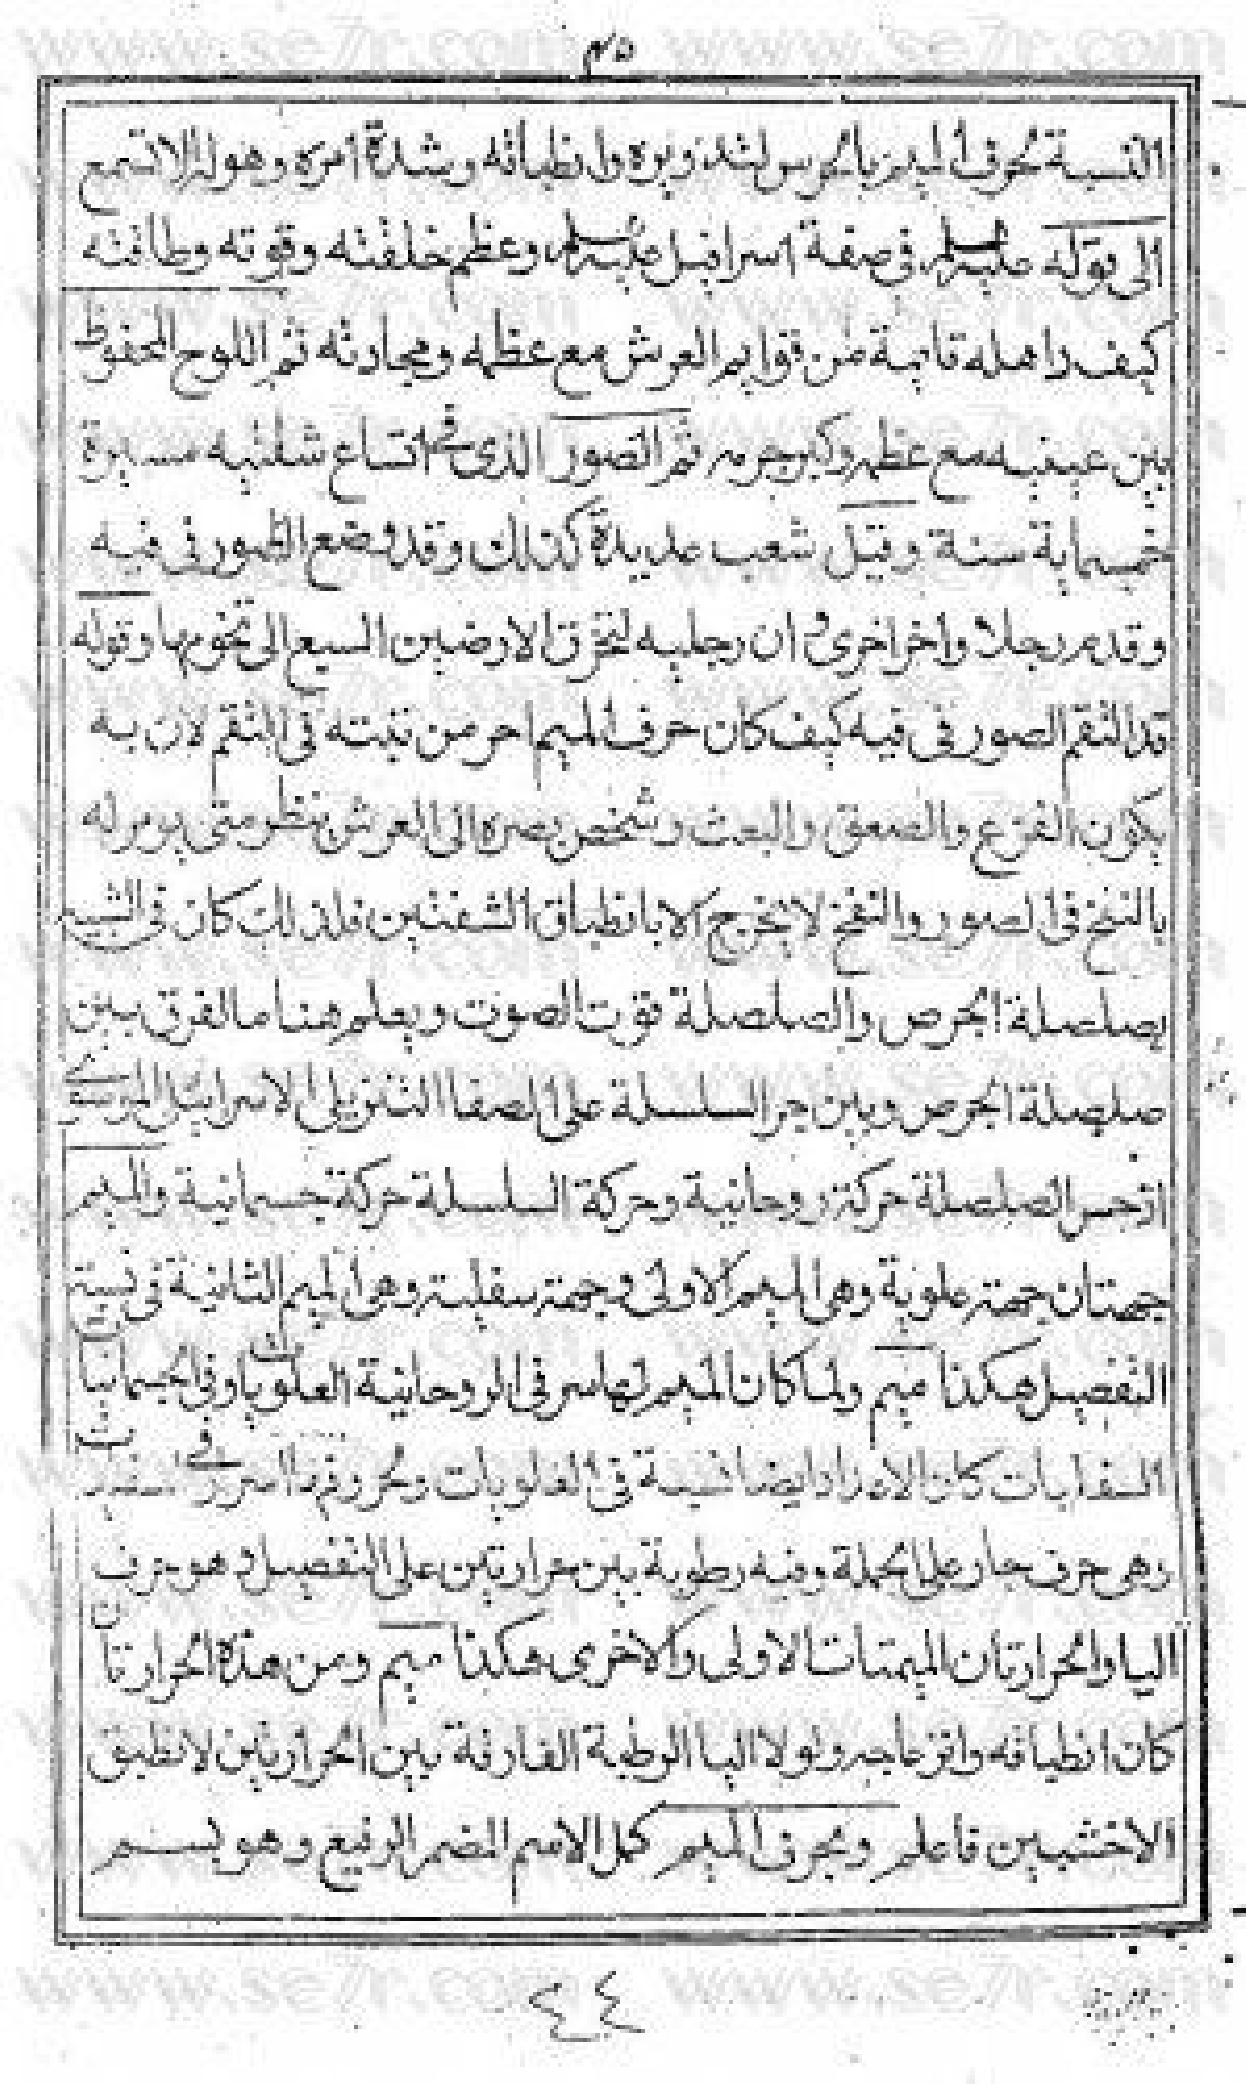 www.se7r.com www.se7r.com
النسبة لحرف الميم بالجرس لشدة وبره وانطباقه وشدة امره وهوله الا تسمع
الى قوله عليه السلم في صفة اسرافيل عليه السلم وعظم خلقته وقوته وطاقته
كيف كاهله قايمة من قوايم العرش مع عظمه ثم اللوح المحفوظ
بين عينيه مع عظمه وكبر جرمه ثم الصور الذي في اتساع شفتيه مسيرة
خمسماية سنة وقيل شعب عديدة كذلك وقد وضع الصور في فيه
وقدم رجلا واخر اخرى وان رجليه لتخرق الارضين السبع الى تخومها وقوله
قد التقم الصور في فيه كيف كان حرف الميم احر من في التقم لان به
يكون الفزع والصعق والبعث وشخص بصره الى العرش ينظر متى يومر له
بالنفخ في الصور والنفخ لا يخرج الا بانطباق الشفتين فلذلك كان في الشبيه
بصلصلة الجرص والصلصلة قوت الصوت ويعلم هنا ما الفرق بين
صلصلة الجرص وبين جر السلسلة على الصفا
الصلصلة حركة روحانية وحركة السلسلة حركة جسمانية والميم
جهتان جهته علوية وهي الميم الاولى وجهته سفلية وهي الميم الثانية في نسبة
التفصيل هكذا ميم ولما كان الميم لها سر في الروحانية العلويات وفي الجسمانيات
السفليات كان الامداد ايضا نسبة في العلويات
وهي حرف حار على الجملة وفيه رطوبة بين حرارتين على التفصيل وهو حرف
اليا والحرارتان الميمتات الاولى والاخرى هكذا ميم ومن هذة الحرارتان
كان انطباقه وانزعاجه ولولا اليا الرطبة الفارقة بين الحرارتين لانطبق
الاخشبين فاعلم وبحرف الميم كمل الاسم المضمر الرفيع وهو بسم
٤٤
www.se7r.com www.se7r.com